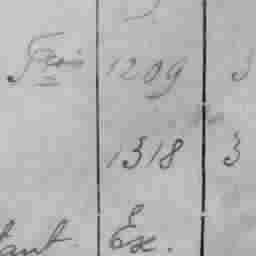 1209
1318 3
tant Ex.